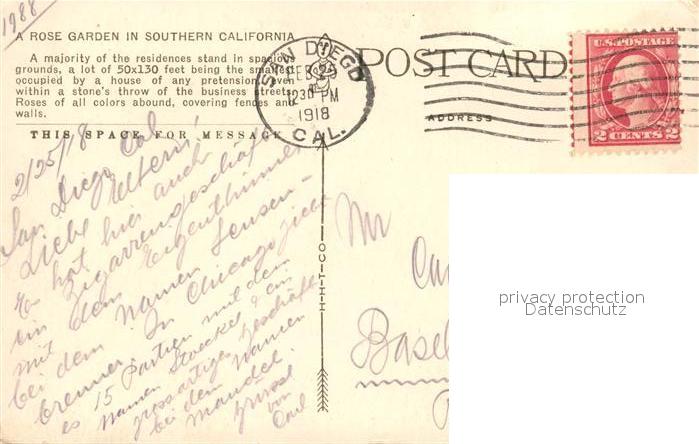 1988
A ROSE GARDEN IN SOUTHERN CALIFORNIA
A majority of the residences stand in spacious
grounds, a lot of 50x130 feet being the smallest
occupied by a house of any pretension, even
within a stone's throw of the business streets.
Roses of all colors abound, covering fences and
walls.
THIS SPACE FOR MESSAGE
POST CARD
ADDRESS
SAN DIEGO
FEB 25
1230 PM
1918
CAL.
U.S. POSTAGE
2 CENTS 2
2/25/18
San Diego Cal
Liebe Eltern!
Es hat hier auch
ein Zigarrengeschäft
mit dem Eigenthümer
bei dem Namen Sensen-
brenner. In Chicago
es 15 Partien mit dem
Namen Stoeckel & ein
grossartiges Geschäft
bei dem Namen
Mandel.
Grüsse
von
Carl
H-I-T-CO
Mr
Basel
privacy protection
Datenschutz